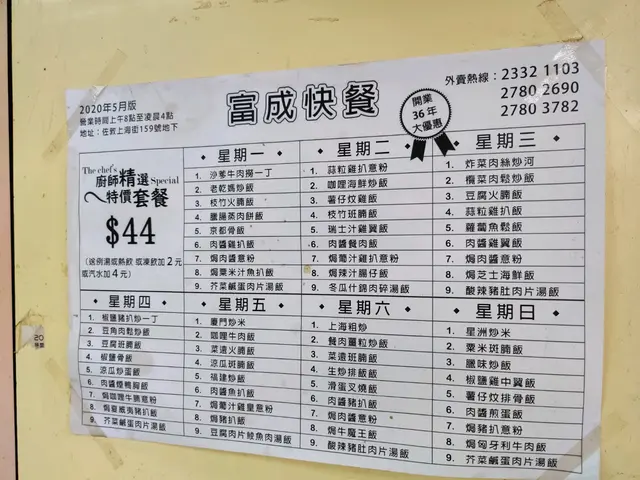 2020年5月版
營業時間上午8點至凌晨4點
地址：佐敦上海街159號地下
富成快餐
開業
36年
大優惠
外賣熱線：2332 1103
2780 2690
2780 3782
The chef's
廚師精選 Special
～特價套餐
$44
(送例湯或熱飲 或凍飲加2元
或汽水加4元)
• 星期一 •
1. 沙爹牛肉撈一丁
2. 老乾媽炒飯
3. 枝竹火腩飯
4. 臘腸蒸肉餅飯
5. 京都骨飯
6. 肉醬雞扒飯
7. 焗肉醬意粉
8. 焗粟米汁魚扒飯
9. 芥菜鹹蛋肉片湯飯
• 星期二 •
1. 蒜粒雞扒意粉
2. 咖喱海鮮炒飯
3. 薯仔炆雞飯
4. 枝竹斑腩飯
5. 瑞士汁雞翼飯
6. 肉醬餐肉飯
7. 焗葡汁雞扒意粉
8. 焗辣汁腸仔飯
9. 冬瓜什錦肉碎湯飯
• 星期三 •
1. 炸菜肉絲炒河
2. 欖菜肉鬆炒飯
3. 豆腐火腩飯
4. 蒜粒雞扒飯
5. 蘿蔔魚鬆飯
6. 肉醬雞翼飯
7. 焗肉醬意粉
8. 焗芝士海鮮飯
9. 酸辣豬肚肉片湯飯
• 星期四 •
1. 椒鹽豬扒炒一丁
2. 豆角肉鬆炒飯
3. 豆腐班腩飯
4. 椒鹽骨飯
5. 涼瓜炒蛋飯
6. 肉醬煙鴨胸飯
7. 焗咖喱牛腩意粉
8. 焗夏威夷豬扒飯
9. 芥菜鹹蛋肉片湯飯
• 星期五 •
1. 廈門炒米
2. 咖喱牛肉飯
3. 菜遠火腩飯
4. 涼瓜斑腩飯
5. 福建炒飯
6. 肉醬魚扒飯
7. 焗葡汁雞皇意粉
8. 焗豬扒飯
9. 豆腐肉片鯪魚肉湯飯
• 星期六 •
1. 上海粗炒
2. 餐肉薑粒炒飯
3. 菜遠班腩飯
4. 生炒排飯飯
5. 滑蛋叉燒飯
6. 肉醬豬扒飯
7. 焗肉醬意粉
8. 焗牛魔王飯
9. 酸辣豬肚肉片湯飯
• 星期日 •
1. 星洲炒米
2. 粟米斑腩飯
3. 臘味炒飯
4. 椒鹽雞中翼飯
5. 薯仔炆排骨飯
6. 肉醬煎蛋飯
7. 焗豬扒意粉
8. 焗匈牙利牛肉飯
9. 芥菜鹹蛋肉片湯飯